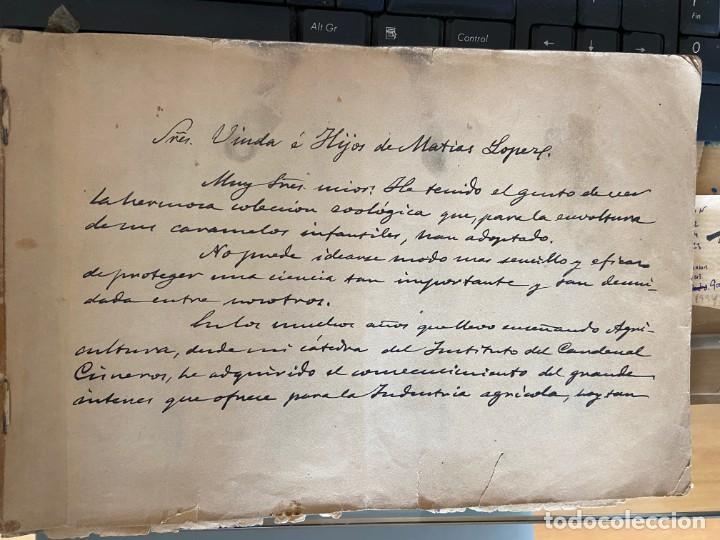 Alt Gr
Control
Fin
0
Sres. Viuda é Hijos de Matias Lopez.
Muy Sres. mios: He tenido el gusto de ver
la hermosa coleccion zoológica que, para la envoltura
de sus caramelos infantiles, han adoptado.
No puede idearse modo mas sencillo y eficaz
de proteger una ciencia tan importante y tan descui-
dada entre nosotros.
En los muchos años que llevo enseñando Agri-
cultura, desde mi cátedra del Instituto del Cardenal
Cisneros, he adquirido el convencimiento del grande
interes que ofrece para la Industria agrícola, hoy tan
todocoleccion
todocoleccion.net